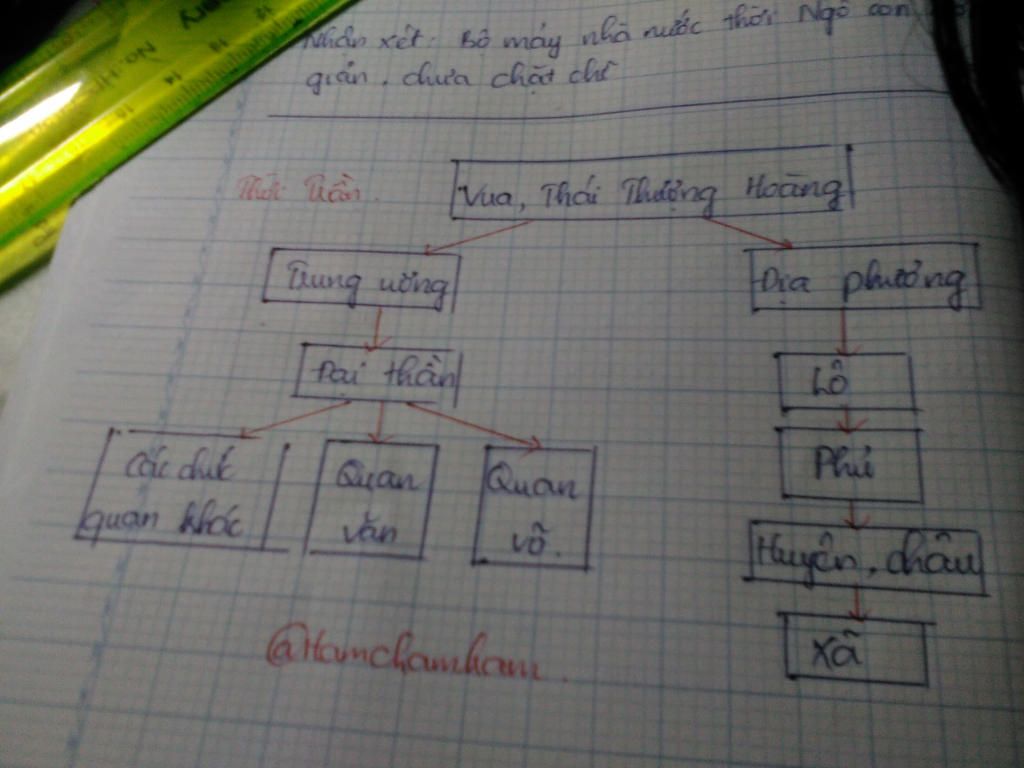 Nhân xét: Bộ máy nhà nước thời Ngô con
giản, chưa chặt chẽ
Thời Trần.
Vua, Thái Thượng Hoàng
Trung ương
Địa phương
Đại thần
Lộ
Các chức
quan khác
Quan
văn
Quan
võ.
Phủ
Huyện, châu
Xã
@Hamchamham.